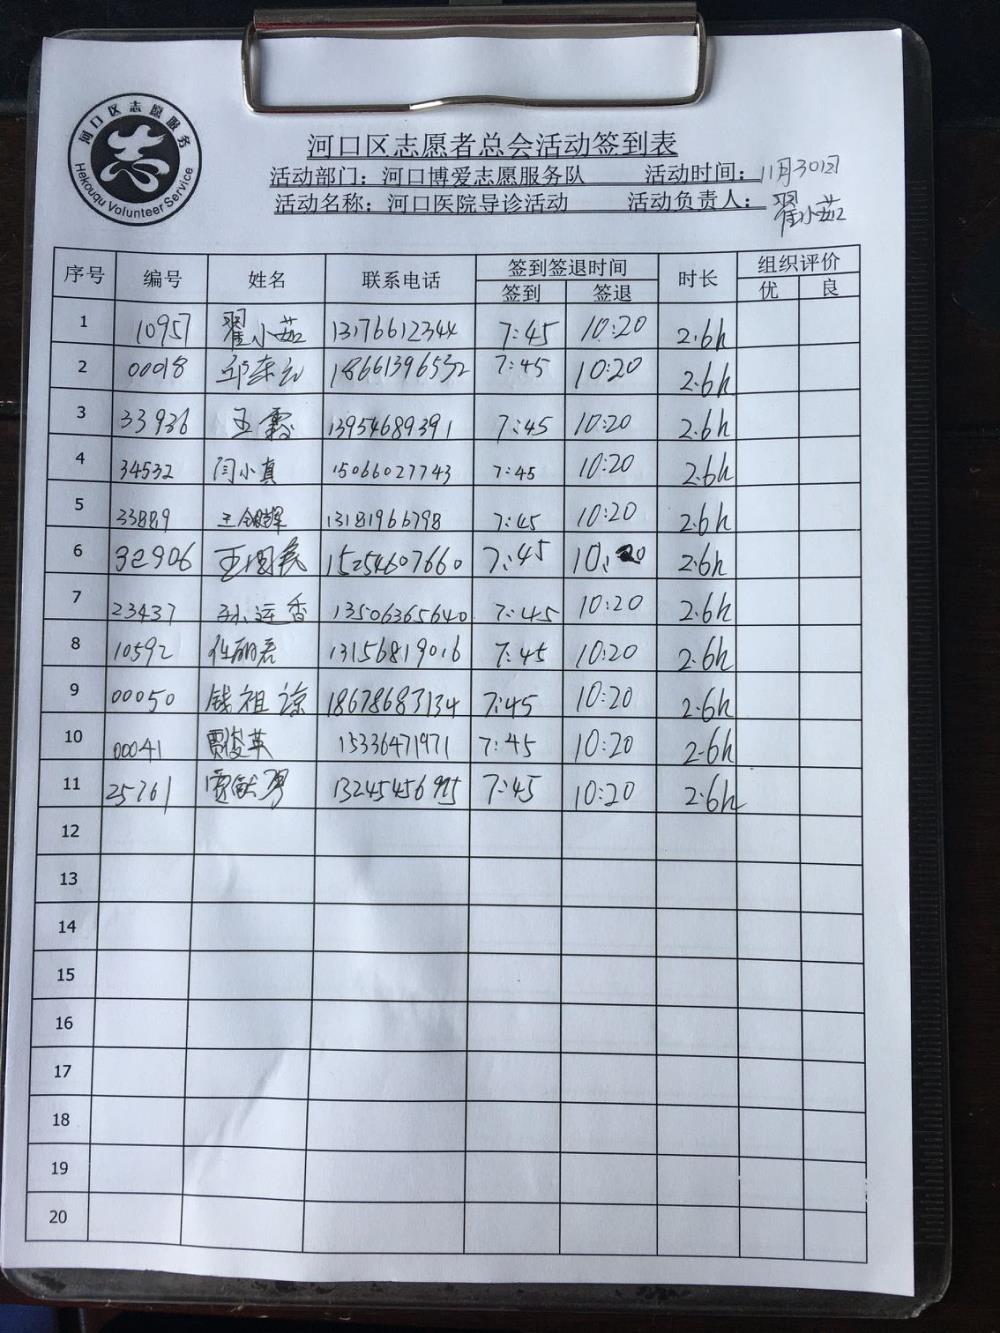 河口区志愿服务
志
Hekouqu Volunteer Service
河口区志愿者总会活动签到表
活动部门：河口博爱志愿服务队 活动时间：11月30日
活动名称：河口医院导诊活动 活动负责人：翟小茹
序号 编号 姓名 联系电话 签到签退时间 时长 组织评价
签到 签退 优 良
1 10957 翟小茹 13176612344 7:45 10:20 2.6h
2 00018 18661396532 7:45 10:20 2.6h
3 33936 王霞 13954689391 7:45 10:20 2.6h
4 34532 闫小真 15066027743 7:45 10:20 2.6h
5 33889 13181966798 7:45 10:20 2.6h
6 32906 王国民 15254607660 7:45 10:20 2.6h
7 23437 孙运香 13506365640 7:45 10:20 2.6h
8 10592 任丽君 13156819016 7:45 10:20 2.6h
9 00050 钱祖谅 18678683134 7:45 10:20 2.6h
10 00041 贾俊英 15336471971 7:45 10:20 2.6h
11 25761 7:45 10:20 2.6h
12
13
14
15
16
17
18
19
20